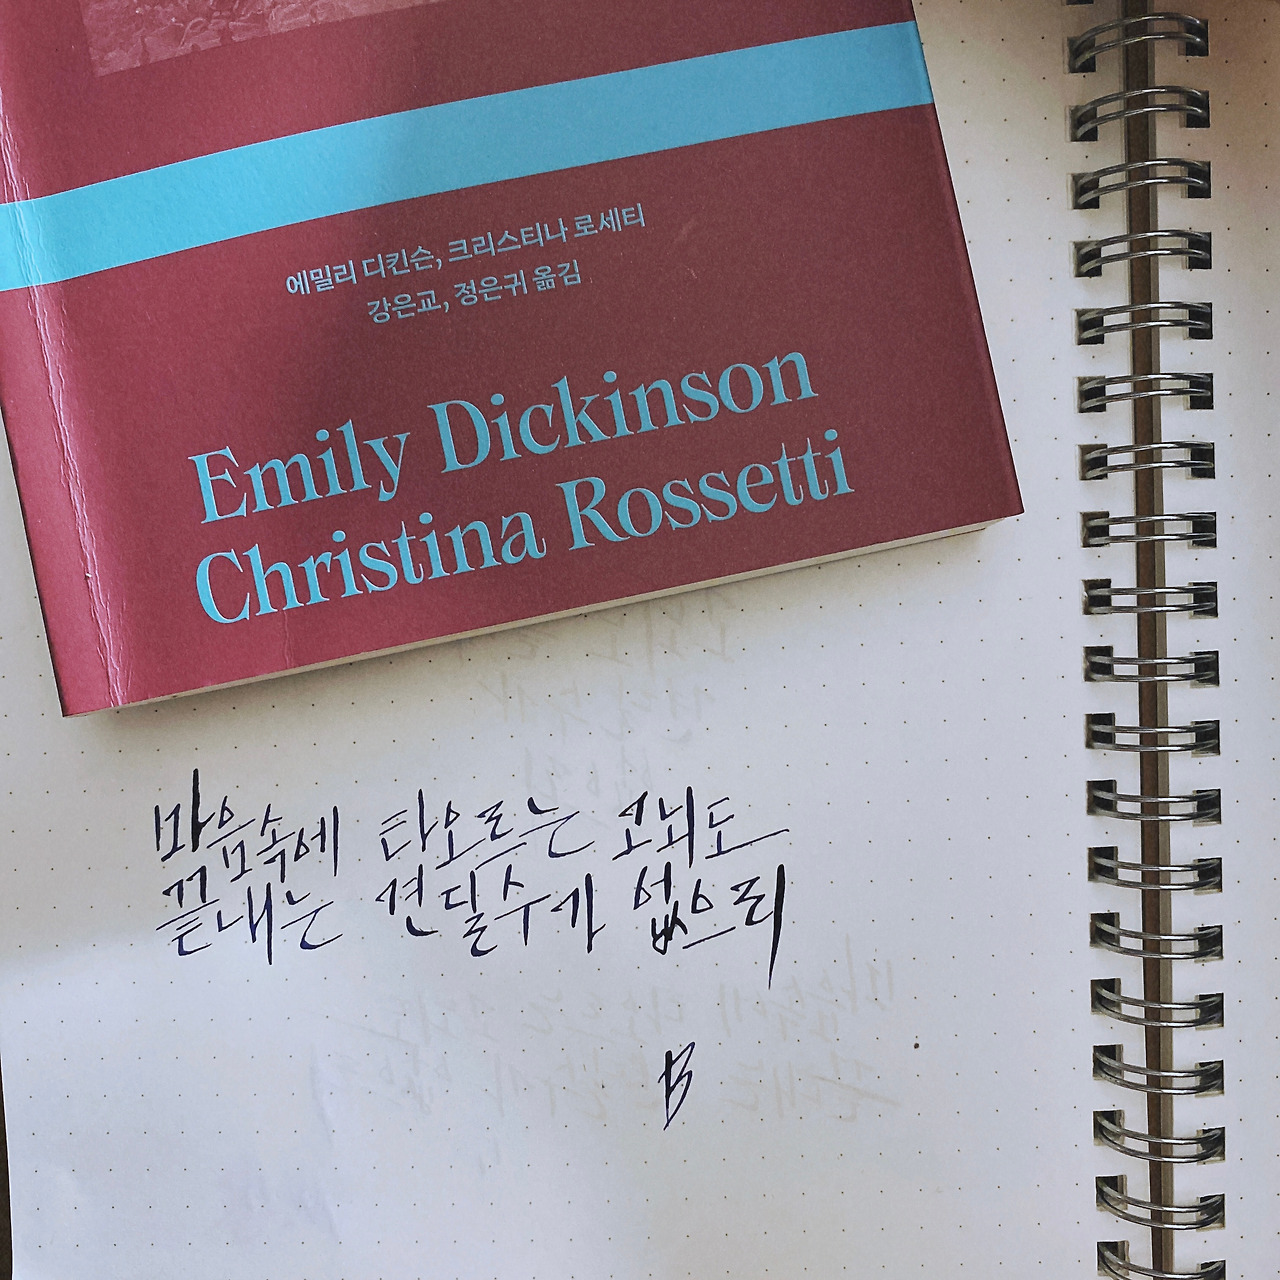 에밀리 디킨슨, 크리스티나 로세티
강은교, 정은귀 옮김
Emily Dickinson
Christina Rossetti
마음속에 타오르는 고뇌도
끝내는 견딜수가 없으리
B